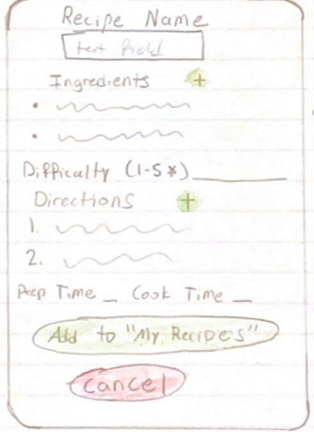 Recipe Name
text field
Ingredients +
Difficulty (1-5*)
Directions +
1.
2.
Prep Time _ Cook Time _
Add to "My Recipes"
Cancel